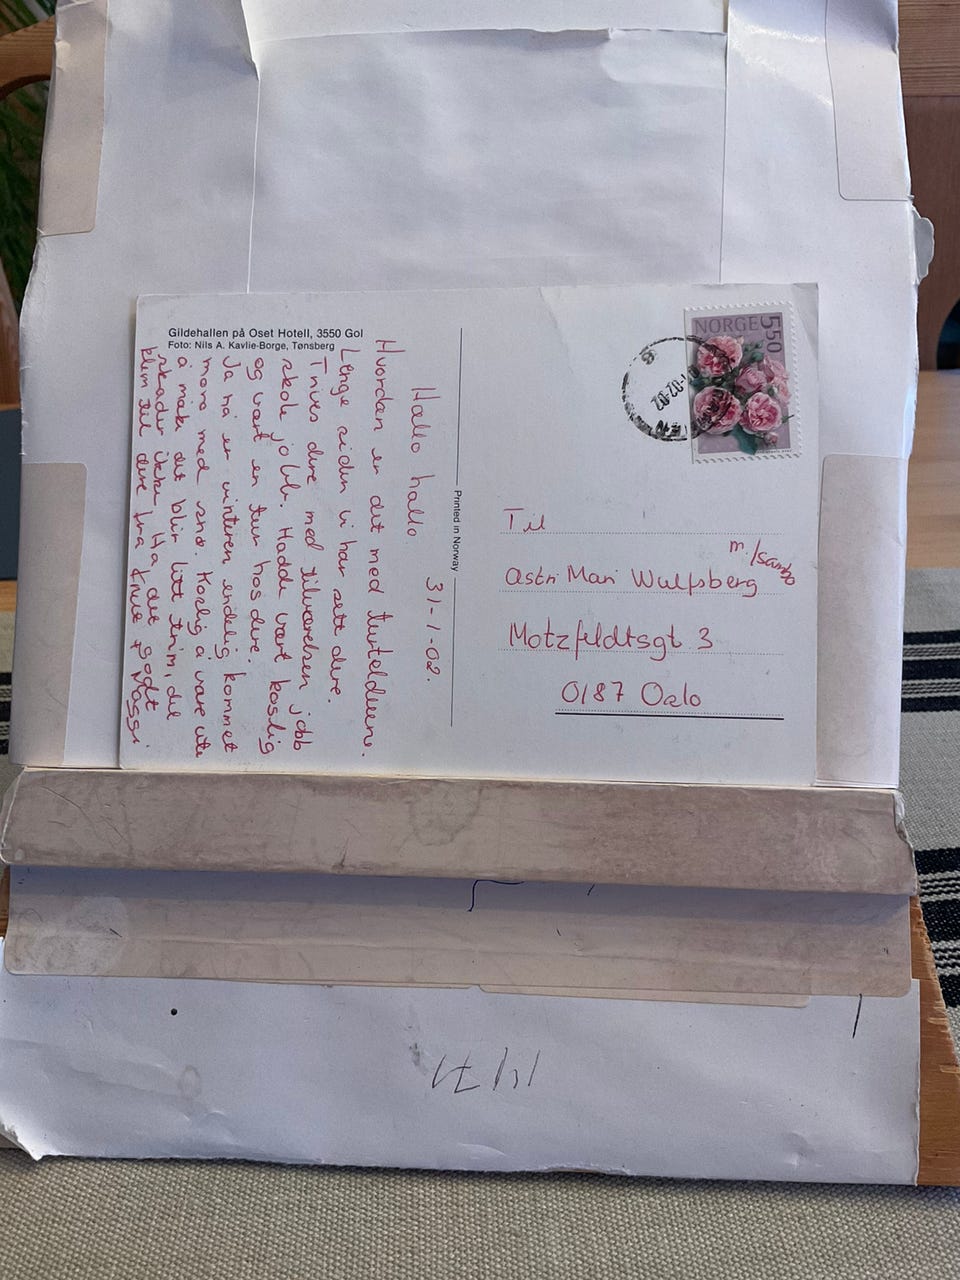 Gildehallen på Oset Hotell, 3550 Gol
Foto: Nils A. Kavlie-Borge, Tønsberg
Hallo hallo. 31-1-02.
Hvordan er det med turtelduene.
Lenge siden vi har sett dere.
Trives dere med tilværelsen jobb
skole jobb. Hadde vært koslig
og vært en tur hos dere.
Ja nå er vinteren endelig kommet
moro med snø. Koslig å være ute
å måke det blir litt trim, det
skader ikke. Ha det godt
klem til dere fra Knut + Vaggi
Printed in Norway
NORGE 550
-1-02-02
Til
Astri Mari Wulfsberg m./sambo
Motzfeldtsgt. 3
0187 Oslo